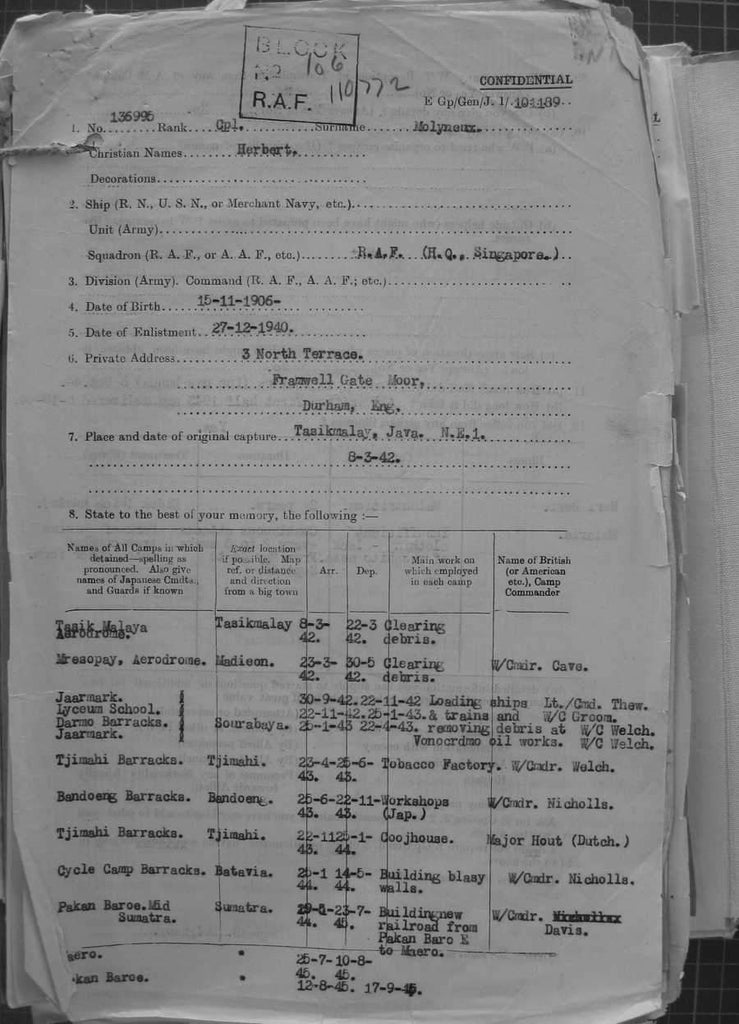 BLOCK
No 106
R.A.F. 110772
CONFIDENTIAL
E Gp/Gen/J. 1/.101189..
1. No. 136995 Rank...Cpl. Surname Molyneux.
Christian Names Herbert.
Decorations
2. Ship (R. N., U. S. N., or Merchant Navy, etc.)
Unit (Army)
Squadron (R. A. F., or A. A. F., etc.) R.A.F. (H.Q., Singapore.)
3. Division (Army). Command (R. A. F., A. A. F.; etc.)
4. Date of Birth 15-11-1906-
5. Date of Enlistment 27-12-1940.
6. Private Address 3 North Terrace.
Framwell Gate Moor,
Durham, Eng.
7. Place and date of original capture Tasikmalay, Java. N.E.1.
8-3-42.
8. State to the best of your memory, the following :—
Names of All Camps in which detained—spelling as pronounced. Also give names of Japanese Cmdts., and Guards if known
Exact location if possible. Map ref. or distance and direction from a big town
Arr.
Dep.
Main work on which employed in each camp
Name of British (or American etc.), Camp Commander
Tasik Malaya Tasikmalay 8-3- 22-3 Clearing
Aerodrome. 42. 42. debris.
Mresopay, Aerodrome. Madieon. 23-3- 30-5 Clearing W/Cmdr. Cave.
42. 42. debris.
Jaarmark. 30-9-42. 22-11-42 Loading ships Lt./Cmd. Thew.
Lyceum School. 22-11-42. 25-1-43. & trains and W/C Groom.
Darmo Barracks. Sourabaya. 25-1-43 22-4-43. removing debris at W/C Welch.
Jaarmark. Vonocrdmo oil works. W/C Welch.
Tjimahi Barracks. Tjimahi. 23-4- 25-6- Tobacco Factory. W/Cmdr. Welch.
43. 43.
Bandoeng Barracks. Bandoeng. 25-6- 22-11- Workshops W/Cmdr. Nicholls.
43. 43. (Jap.)
Tjimahi Barracks. Tjimahi. 22-11 25-1- Coojhouse. Major Hout (Dutch.)
43. 44.
Cycle Camp Barracks. Batavia. 25-1 14-5- Building blasy W/Cmdr. Nicholls.
44. 44. walls.
Pakan Baroe. Mid Sumatra. 23-7- Buildingnew W/Cmdr.
Sumatra. 44. 45. railroad from Davis.
Pakan Baro E
to Maero.
aero. " 25-7- 10-8-
45. 45.
kan Baroe. " 12-8-45. 17-9-45.